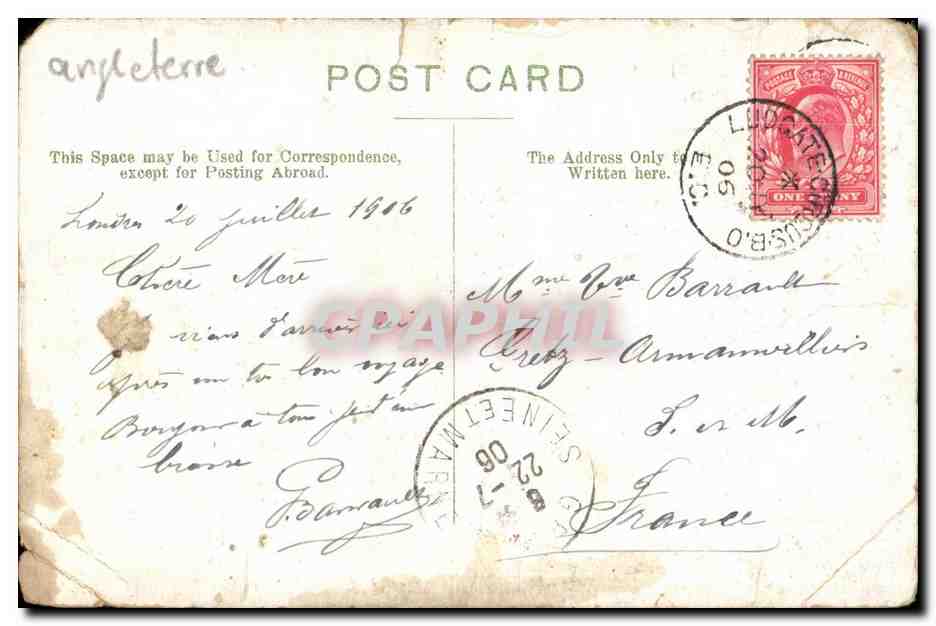 angleterre
POST CARD
This Space may be Used for Correspondence,
except for Posting Abroad.
The Address Only to
Written here.
POSTAGE REVENUE
ONE PENNY
LUDGATE·CIRCUS·B.O
E.C.
20
06
Londres 20 juillet 1906
Chère Mère
viens d'arriver ici
après un bon voyage
Bonjour à tous
P. Barrault
Mme Vve Barrault
Gretz - Armainvilliers
S. et M.
France
SEINE ET MARNE
22 -7
06
CPAPHIL